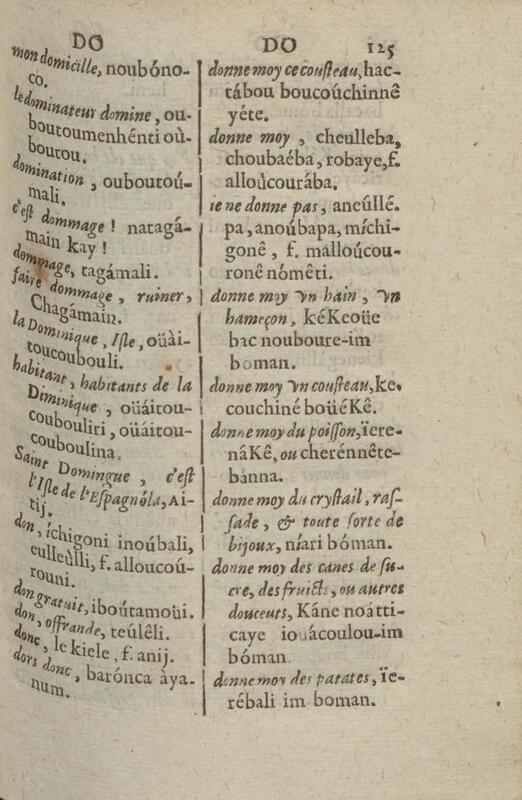 DO
mon domicille, noubóno-
co.
le dominateur domine, ou-
boutoumenhénti où-
boutou.
domination, ouboutoú-
mali.
c'est dommage! natagá-
main kay!
dommage, tagámali.
faire dommage, ruiner,
Chagámain.
la Dominique, Isle, oüài-
toucoubouli.
habitant, habitants de la
Diminique, oüáitou-
coubouliri, oüáitou-
couboulina.
Saint Domingue, c'est
l'Isle de l'Espagnóla, Ai-
tij.
don, íchigoni inoúbali,
eulleùlli, f. alloucoú-
rouni.
don gratuit, iboútamoüi.
don, offrande, teúlêli.
donc, le kiele, f. anij.
dors donc, barónca àya-
num.
DO 125
donne moy ce cousteau, hac-
tábou boucoúchinnê
yéte.
donne moy, cheulleba,
choubaéba, robaye, f.
alloùcourába.
ie ne donne pas, aneúllé-
pa, anoúbapa, míchi-
gonê, f. malloúcou-
ronê nómêti.
donne moy vn hain, vn
hameçon, kéKeoüe
bac nouboure-im
boman.
donne moy vn cousteau, ke-
couchiné boüéKê.
donne moy du poisson, ïere-
náKê, ou cherénnête-
bánna.
donne moy du crystail, ras-
sade, & toute sorte de
bijoux, níari bóman.
donne moy des canes de su-
cre, des fruicts, ou autres
douceurs, Káne noátti-
caye iouácoulou-im
bóman
donne moy des patates, ïe-
rébali im boman.